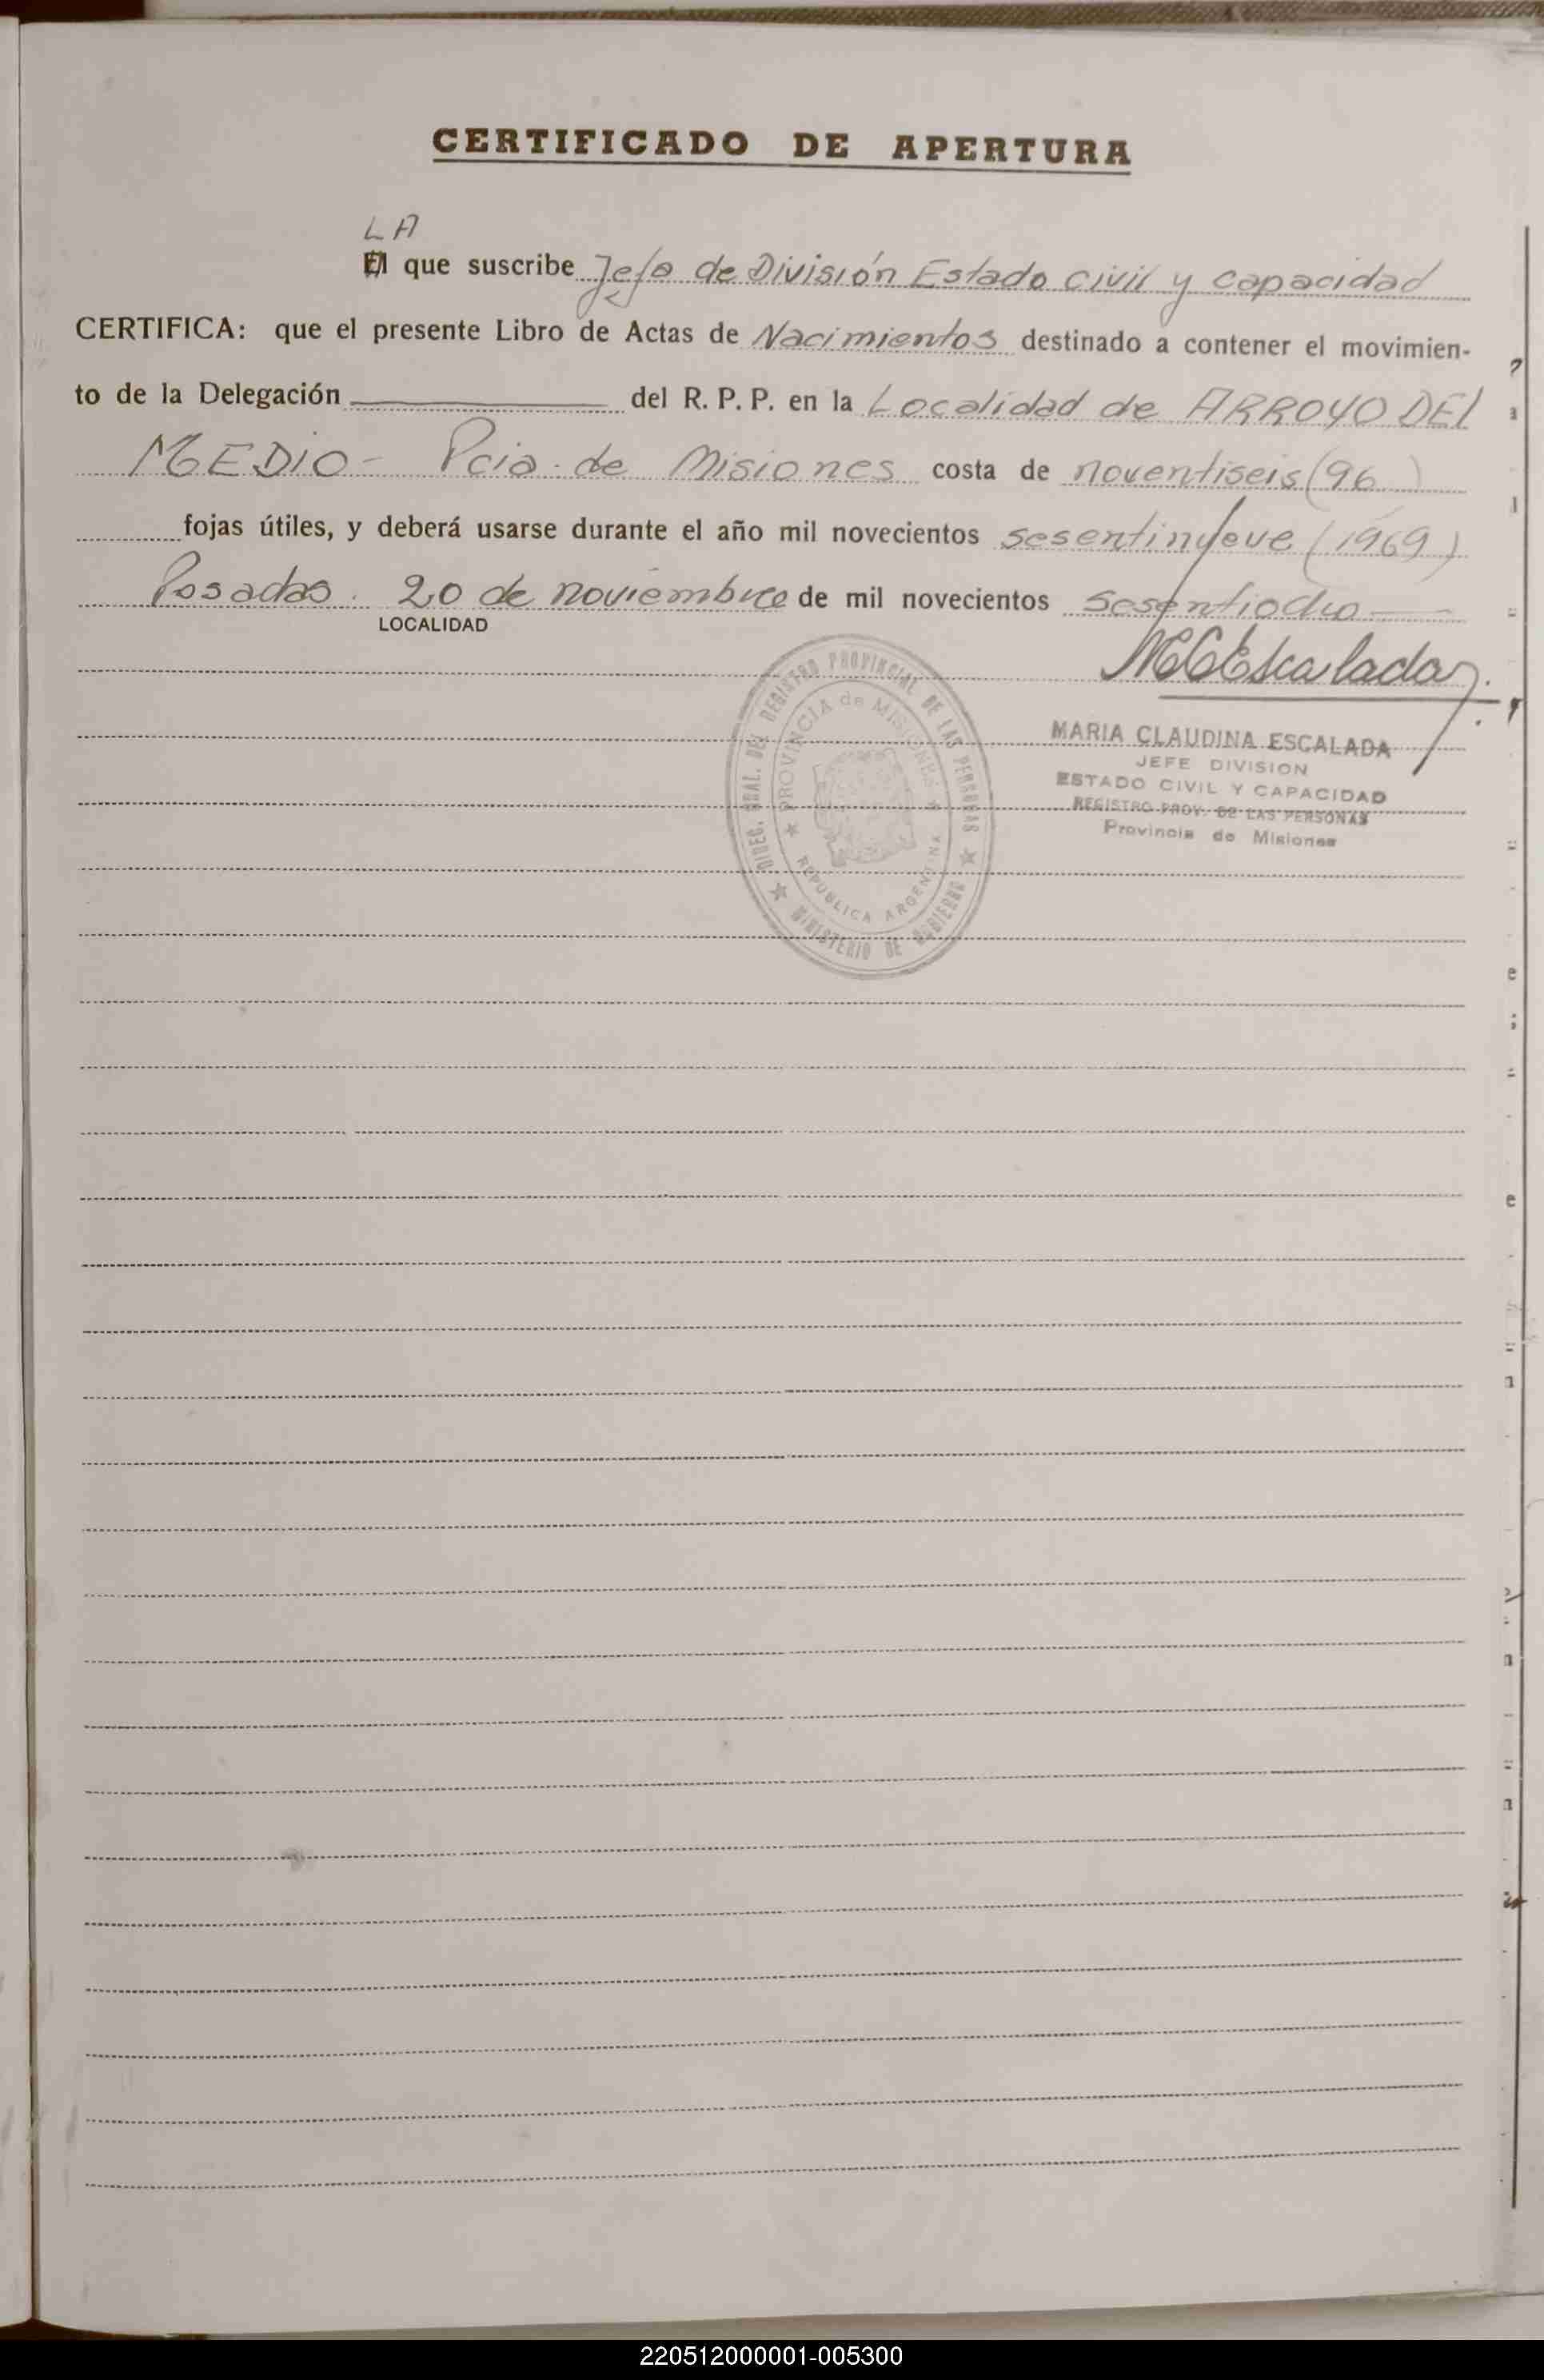 CERTIFICADO DE APERTURA
LA
El que suscribe Jefa de División Estado civil y capacidad
CERTIFICA: que el presente Libro de Actas de Nacimientos destinado a contener el movimien-
to de la Delegación del R. P. P. en la Localidad de ARROYO DEL
MEDIO - Pcia. de Misiones costa de noventiseis (96)
fojas útiles, y deberá usarse durante el año mil novecientos sesentinueve (1969)
Posadas. 20 de noviembre de mil novecientos sesentiocho
LOCALIDAD
MCEscalada
MARIA CLAUDINA ESCALADA
JEFE DIVISION
ESTADO CIVIL Y CAPACIDAD
REGISTRO PROV. DE LAS PERSONAS
Provincia de Misiones
DIREC. GRAL. DEL REGISTRO PROVINCIAL DE LAS PERSONAS
MINISTERIO DE GOBIERNO
PROVINCIA de MISIONES
REPUBLICA ARGENTINA
220512000001-005300